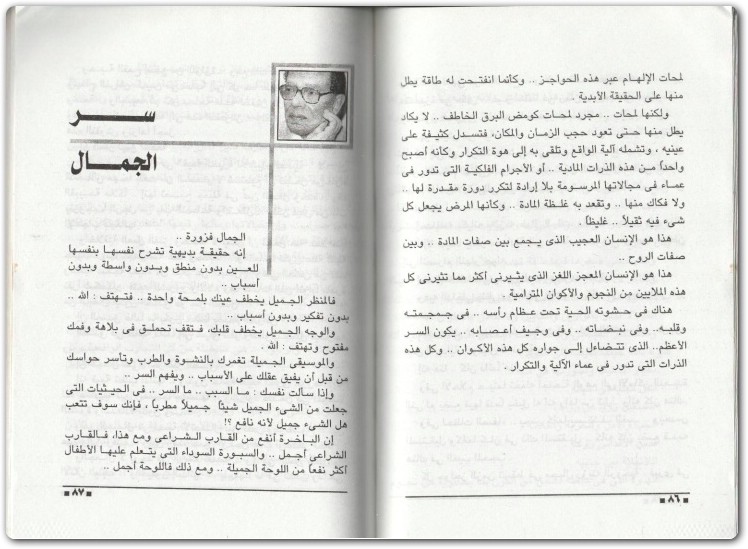 لمحات الإلهام عبر هذه الحواجز .. وكأنما انفتحت له طاقة يطل
منها على الحقيقة الأبدية .
ولكنها لمحات .. مجرد لمحات كومض البرق الخاطف .. لا يكاد
يطل منها حتى تعود حجب الزمان والمكان، فتسدل كثيفة على
عينيه ، وتشمله آلية الواقع وتلقى به إلى هوة التكرار وكأنه أصبح
واحداً من هذه الذرات المادية .. أو الأجرام الفلكية التى تدور فى
عماء فى مجالاتها المرسومة بلا إرادة لتكرر دورة مقدرة لها ..
ولا فكاك منها .. وتقعد به غلظة المادة .. وكأنها المرض يجعل كل
شىء فيه ثقيلاً .. غليظاً .
هذا هو الإنسان العجيب الذى يجمع بين صفات المادة .. وبين
صفات الروح ..
هذا هو الإنسان المعجز اللغز الذى يثيرنى أكثر مما تثيرنى كل
هذه الملايين من النجوم والأكوان المترامية .
هناك فى حشوته الحية تحت عظام رأسه .. فى جمجمته
وقلبه.. وفى نبضاته .. وفى وجيف أعصابه .. يكون السر
الأعظم.. الذى تتضاءل إلى جواره كل هذه الأكوان .. وكل هذه
الذرات التى تدور فى عماء الآلية والتكرار .
٨٦
سر
الجمال
الجمال فزورة ..
إنه حقيقة بديهية تشرح نفسها بنفسها
للعين بدون منطق وبدون واسطة وبدون
أسباب ..
فالمنظر الجميل يخطف عينك بلمحة واحدة .. فتهتف : الله ..
بدون تفكير وبدون أسباب ..
والوجه الجميل يخطف قلبك، فتقف تحملق فى بلاهة وفمك
مفتوح وتهتف : الله .
والموسيقى الجميلة تغمرك بالنشوة والطرب وتأسر حواسك
من قبل أن يفيق عقلك على الأسباب .. ويفهم السر ..
وإذا سألت نفسك : ما السبب .. ما السر .. فى الحيثيات التى
جعلت من الشىء الجميل شيئاً جميلاً مطرباً ، فإنك سوف تتعب
هل الشىء جميل لأنه نافع ؟!
إن الباخرة أنفع من القارب الشراعى ومع هذا، فالقارب
الشراعى أجمل .. والسبورة السوداء التى يتعلم عليها الأطفال
أكثر نفعاً من اللوحة الجميلة .. ومع ذلك فاللوحة أجمل ..
٨٧